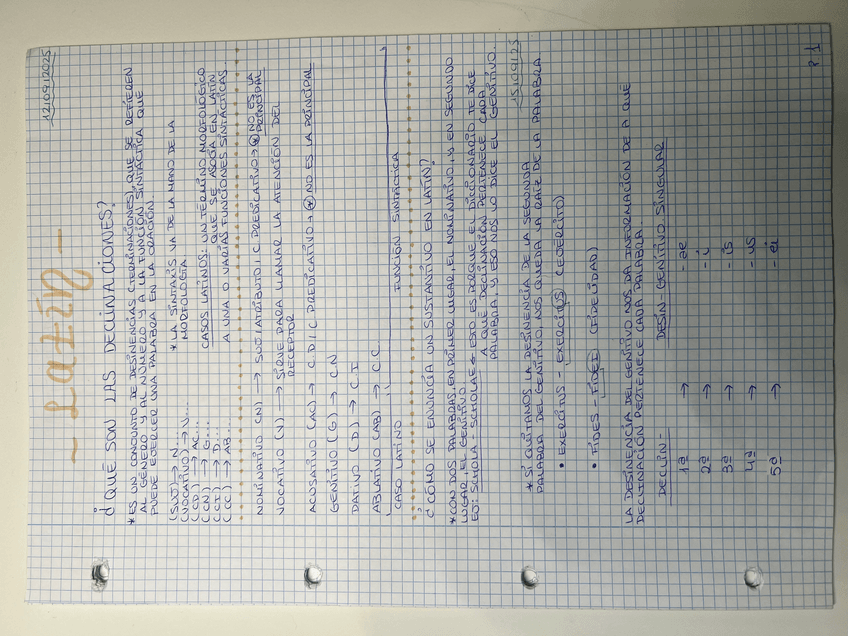 12/09/2025
~ Latín ~
¿QUÉ SON LAS DECLINACIONES?
* ES UN CONJUNTO DE DESINENCIAS (TERMINACIONES), QUE SE REFIEREN
AL GÉNERO Y AL NÚMERO Y A LA FUNCIÓN SINTÁCTICA QUE
PUEDE EJERCER UNA PALABRA EN LA ORACIÓN.
* LA SINTAXIS VA DE LA MANO DE LA
MORFOLOGÍA
(SUJ) → N...
(VOCATIVO) → V...
(CD) → AC...
(CN) → G...
(CI) → D...
(CC) → AB...
CASOS LATINOS: UN TÉRMINO MORFOLÓGICO
QUE SE ASOCIA EN LATÍN
A UNA O VARIAS FUNCIONES SINTÁCTICAS.
NOMINATIVO (N) → SUJ / ATRIBUTO / C PREDICATIVO → * NO ES LA
PRINCIPAL
VOCATIVO (V) → SIRVE PARA LLAMAR LA ATENCIÓN DEL
RECEPTOR
ACUSATIVO (AC) → CD / C PREDICATIVO → * NO ES LA PRINCIPAL
GENITIVO (G) → CN
DATIVO (D) → CI
ABLATIVO (AB) → CC
CASO LATINO FUNCIÓN SINTÁCTICA
¿CÓMO SE ENUNCIA UN SUSTANTIVO EN LATÍN?
* CON DOS PALABRAS, EN PRIMER LUGAR, EL NOMINATIVO, Y EN SEGUNDO
LUGAR, EL GENITIVO
EJ: SCHOLA - SCHOLAE ESTO ES PORQUE EL DICCIONARIO TE DICE
A QUÉ DECLINACIÓN PERTENECE CADA
PALABRA, Y ESO NOS LO DICE EL GENITIVO.
15/09/25
* SI QUITAMOS LA DESINENCIA DE LA SEGUNDA
PALABRA DEL GENITIVO, NOS QUEDA LA RAÍZ DE LA PALABRA
• EXERCITUS - EXERCITUS (EJÉRCITO)
• FIDES - FIDEI (FIDELIDAD)
LA DESINENCIA DEL GENTIVO NOS DA INFORMACIÓN DE A QUÉ
DECLINACIÓN PERTENECE CADA PALABRA.
DECLIN- DESIN - GENITIVO SINGULAR
1ª → - ae
2ª → - i
3ª → - is
4ª → - us
5ª → - ei
P. 1